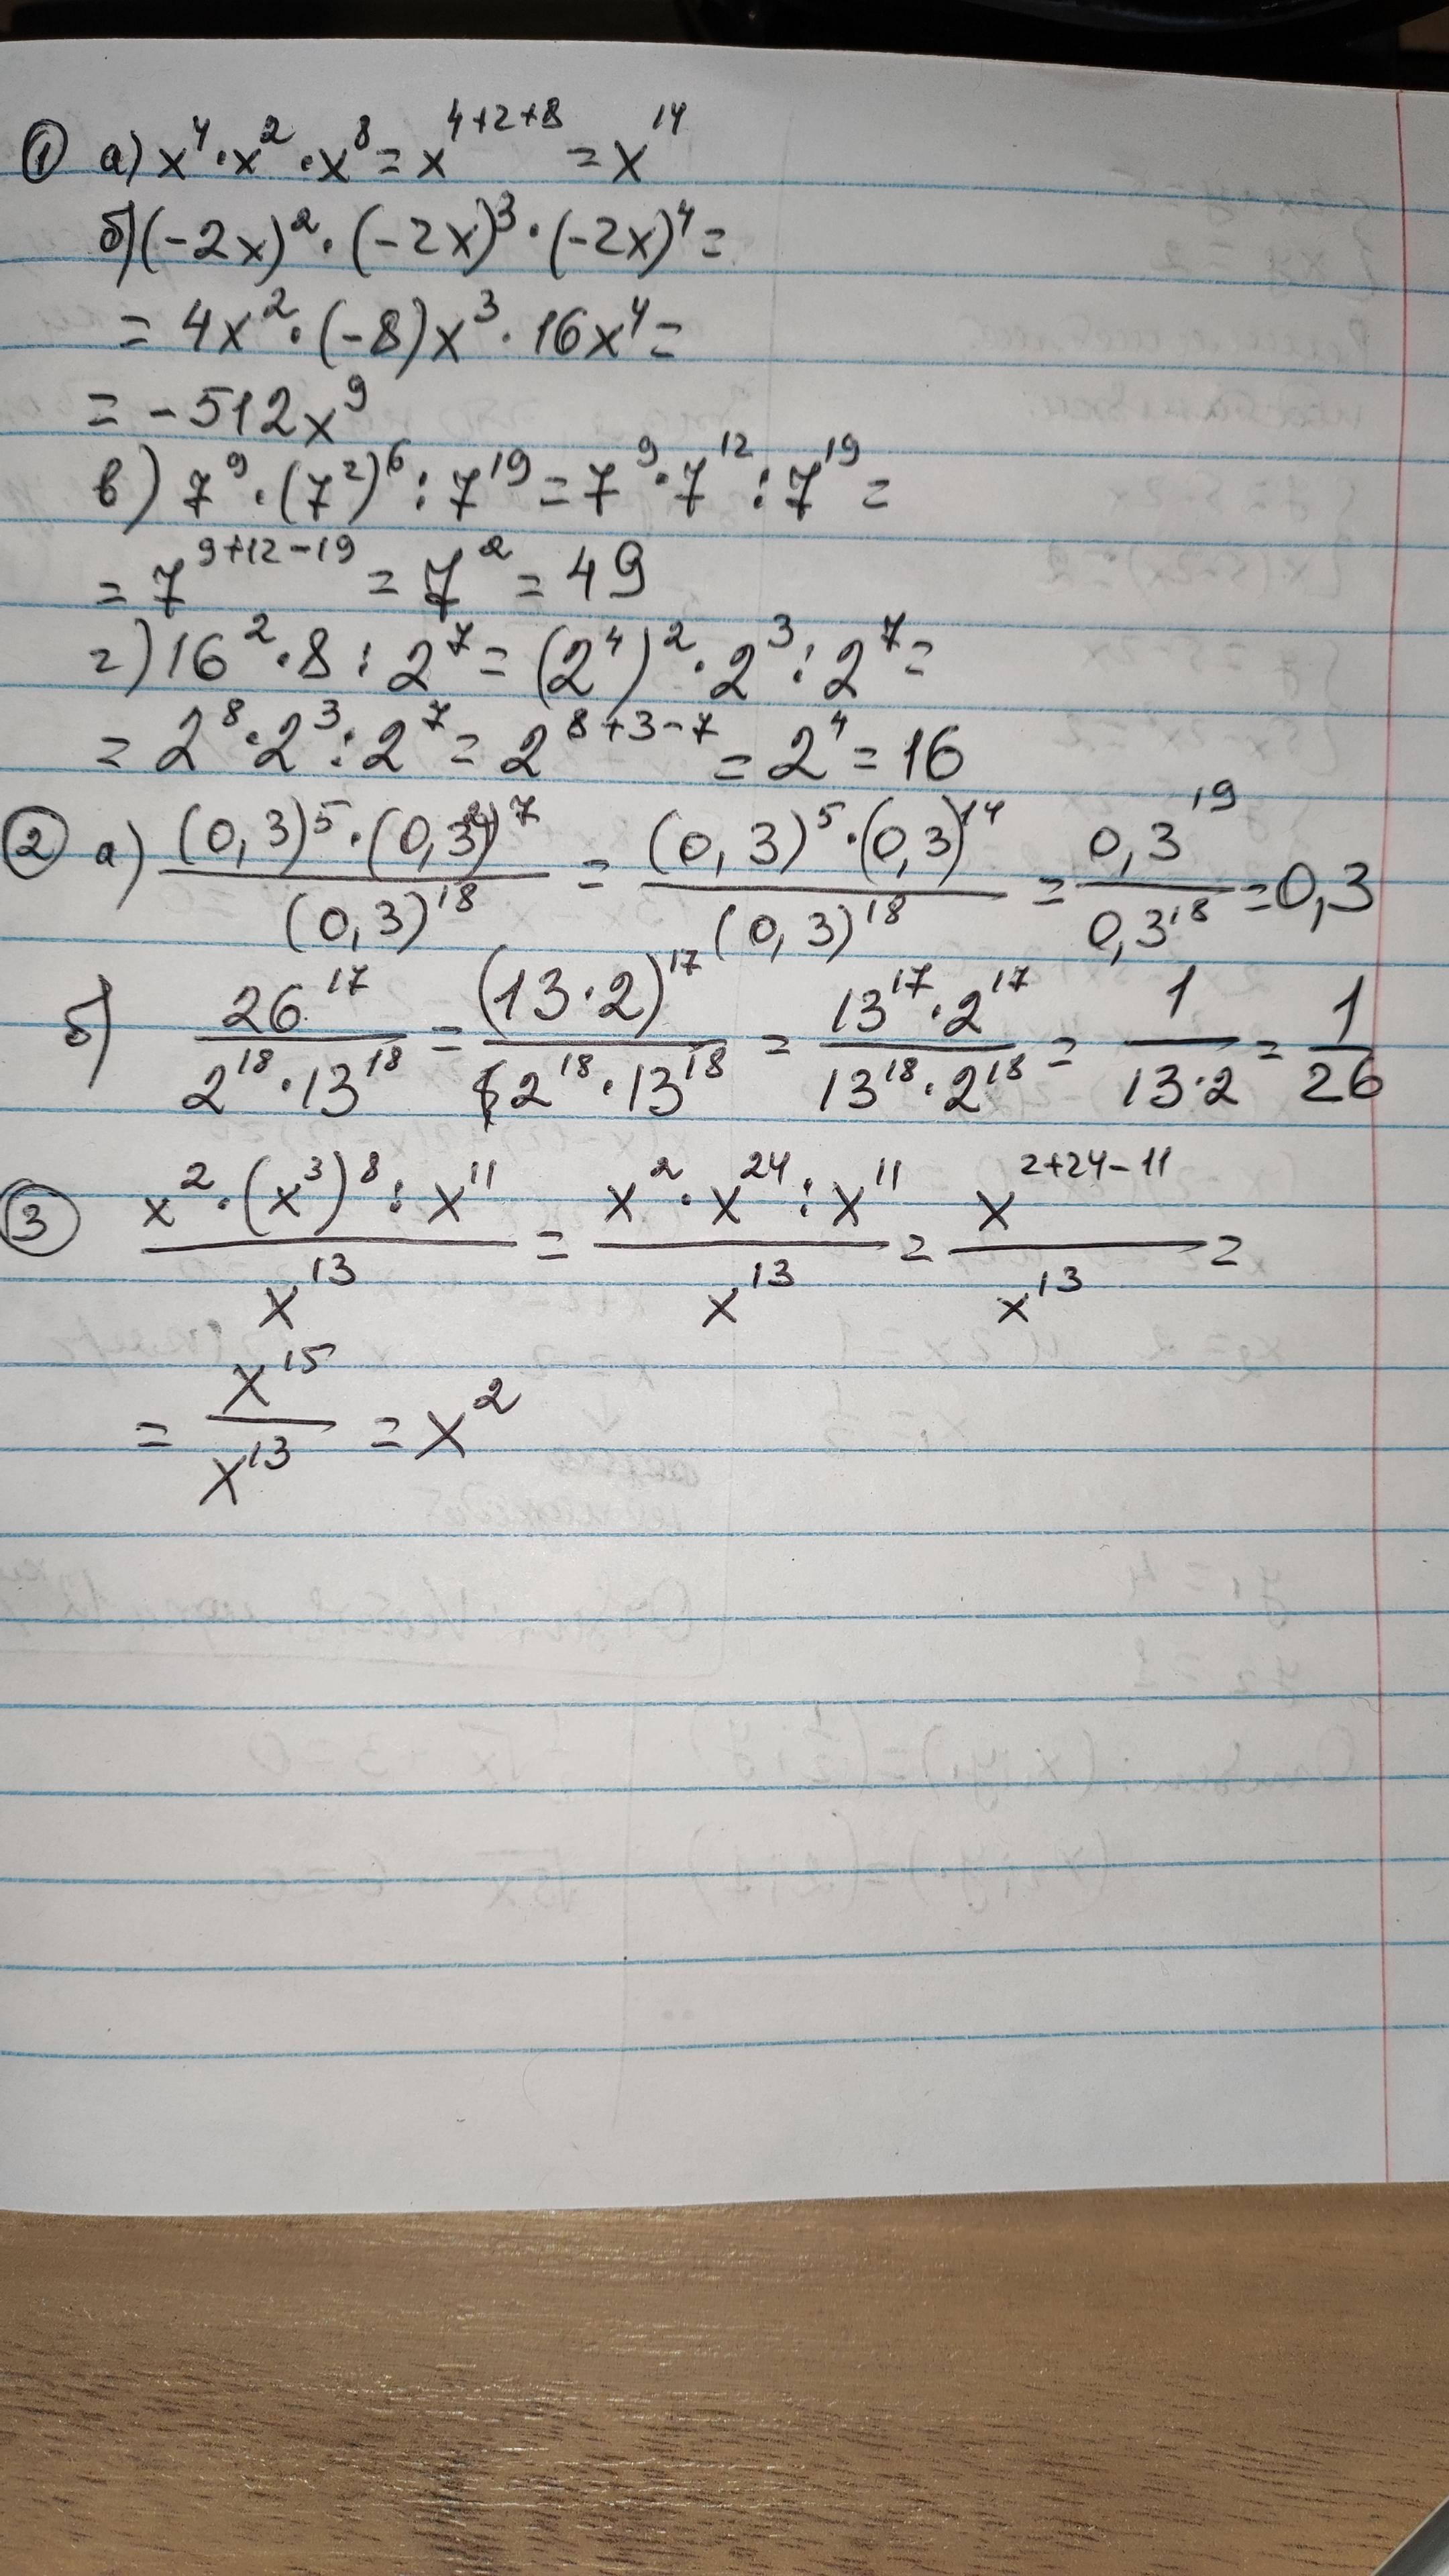 ① а) x⁴·x²·x⁸ = x⁴⁺²⁺⁸ = x¹⁴
б) (-2x)²·(-2x)³·(-2x)⁴ =
= 4x²·(-8)x³·16x⁴ =
= -512x⁹
в) 7⁹·(7²)⁶ : 7¹⁹ = 7⁹·7¹² : 7¹⁹ =
= 7⁹⁺¹²⁻¹⁹ = 7² = 49
г) 16²·8 : 2⁷ = (2⁴)²·2³ : 2⁷ =
= 2⁸·2³ : 2⁷ = 2⁸⁺³⁻⁷ = 2⁴ = 16
② а) (0,3)⁵·(0,3²)⁷ / (0,3)¹⁸ = (0,3)⁵·(0,3)¹⁴ / (0,3)¹⁸ = 0,3¹⁹ / 0,3¹⁸ = 0,3
б) 26¹⁷ / 2¹⁸·13¹⁸ = (13·2)¹⁷ / 2¹⁸·13¹⁸ = 13¹⁷·2¹⁷ / 13¹⁸·2¹⁸ = 1 / 13·2 = 1 / 26
③ x²·(x³)⁸ : x¹¹ / x¹³ = x²·x²⁴ : x¹¹ / x¹³ = x²⁺²⁴⁻¹¹ / x¹³ =
= x¹⁵ / x¹³ = x²